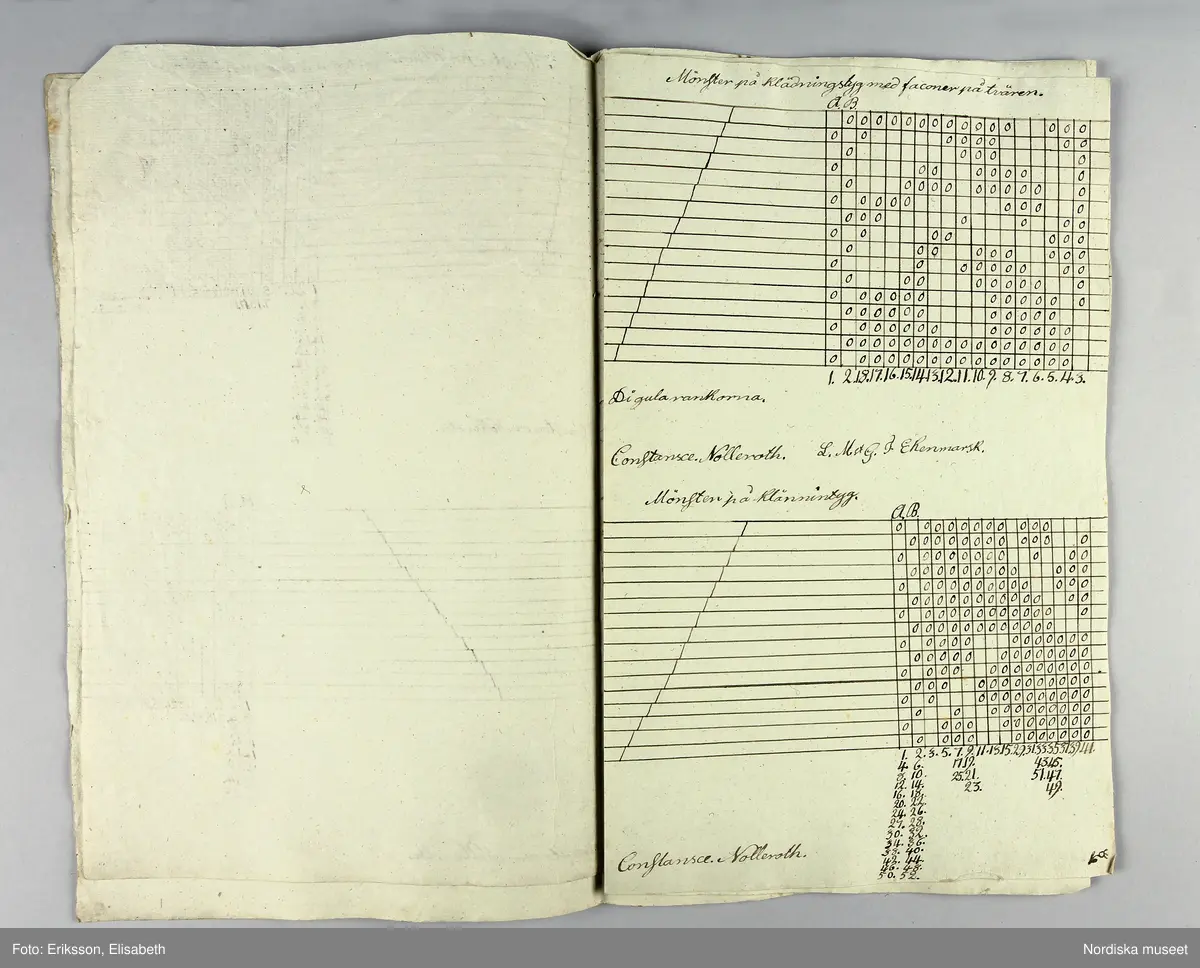 Mönster på klädningstyg med faconer på tvären.
A, B.
1. 2. 18. 17. 16. 15. 14. 13. 12. 11. 10. 9. 8. 7. 6. 5. 4. 3.
Di gula rankorna.
Constansce. Nolleroth. L. M. G. F. Ekenmarsk.
Mönster på klännintyg.
A, B.
1. 2. 3. 5. 7. 9. 11. 13. 15. 29. 31. 33. 35. 37. 39. 41.
4. 6. 17. 19. 43. 45.
8. 10. 25. 21. 51. 47.
12. 14. 23. 49.
16. 18.
20. 22.
24. 26.
27. 28.
30. 32.
34. 36.
38. 40.
42. 44.
46. 48.
50. 52.
Constansce. Nolleroth.
Foto: Eriksson, Elisabeth
Nordiska museet